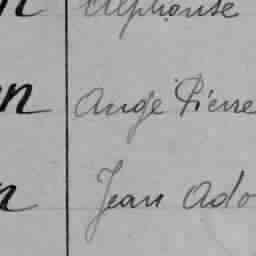 n Alphonse
n Ange Pierre
n Jean Ado